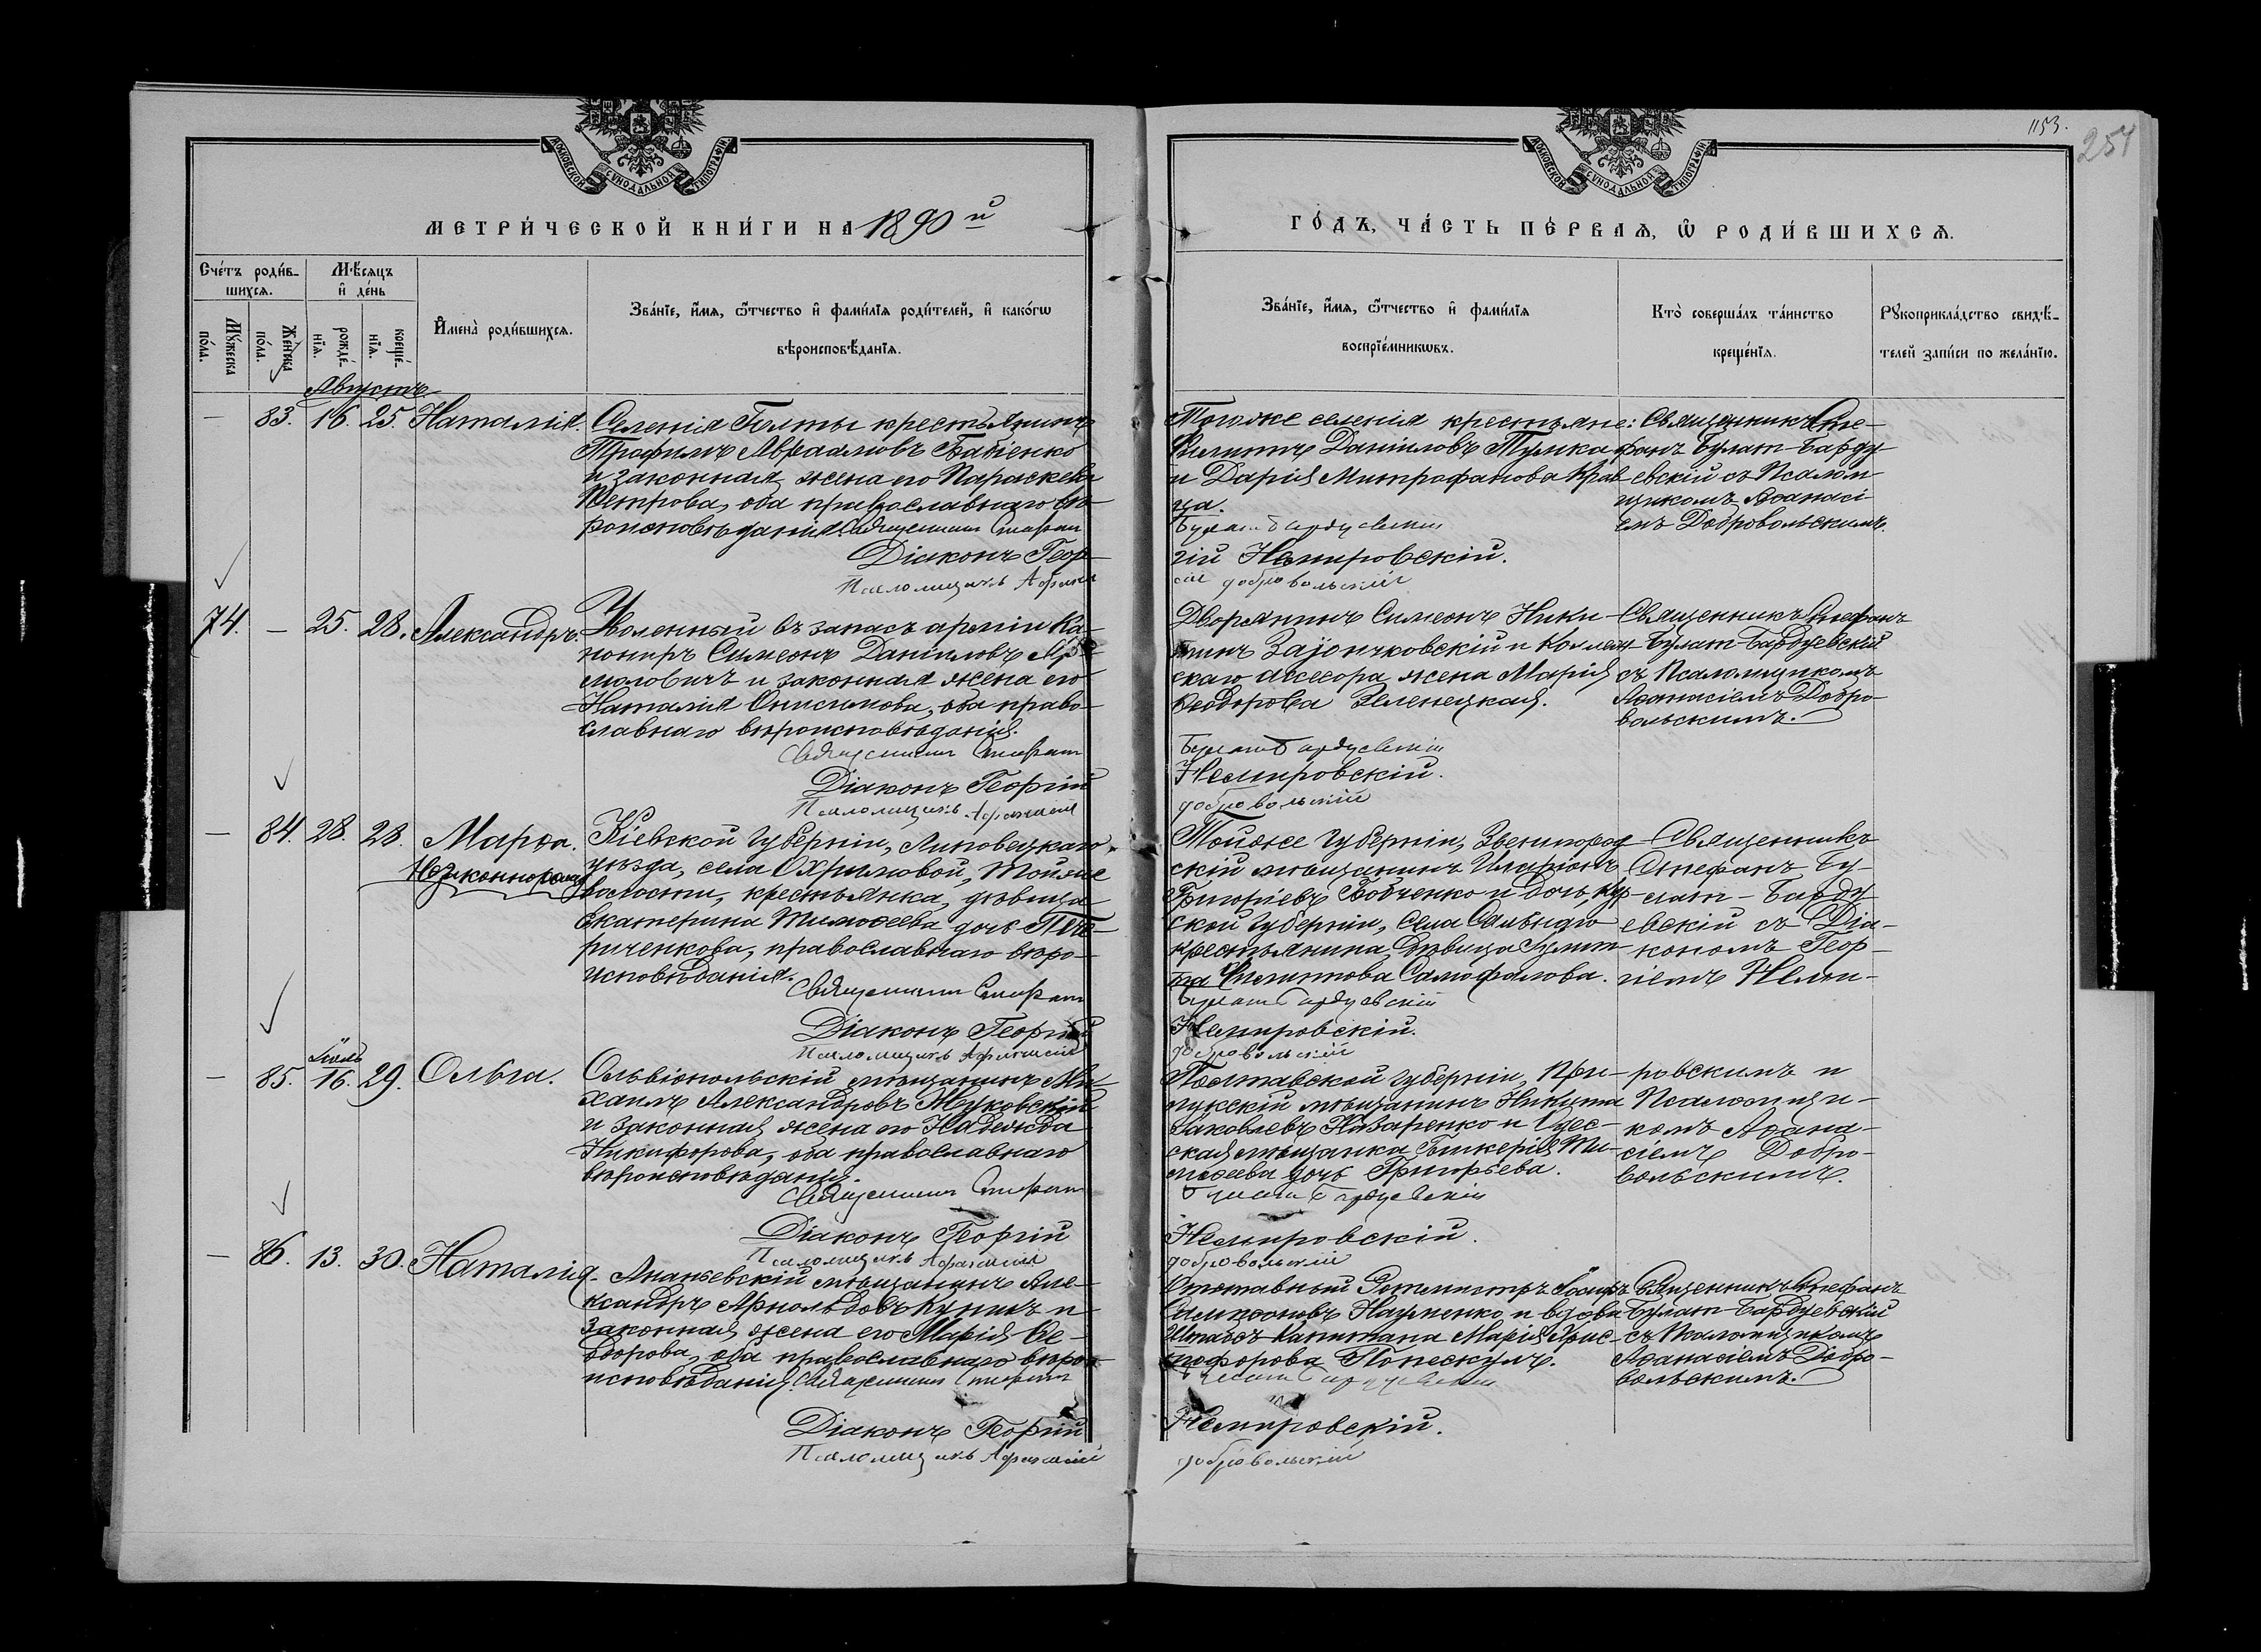 1153.
254
МОСКОВСКОЙ СѴНОДАЛЬНОЙ ТИПОГРАФІИ
МОСКОВСКОЙ СѴНОДАЛЬНОЙ ТИПОГРАФІИ
МЕТРИ́ЧЕСКОЙ КНИ́ГИ НА 1890й
ГО́ДЪ, ЧА́СТЬ ПЕ́РВАѦ, Ѽ РОДИ́ВШИХСѦ.
Сче́тъ роди́в-
шихсѧ.
Мѣ́сѧцъ
и҆ де́нь
Мꙋ́жеска
по́ла.
Же́нска
по́ла.
рожде́-
нїѧ.
креще́-
нїѧ.
И҆мена̀ роди́вшихсѧ.
Зва́нїе, и҆́мѧ, ѻ҆́тчество и҆ фами́лїѧ роди́телей, и҆ како́гѡ
вѣроисповѣ́данїѧ.
Зва́нїе, и҆́мѧ, ѻ҆́тчество и҆ фами́лїѧ
воспрїе́мникѡвъ.
Кто̀ соверша́лъ та́инство
креще́нїѧ.
Рꙋкоприкла́дство свидѣ́-
телей за́писи по жела́нїю.
Августъ
— 83. 16. 25. Наталія.
Селенія Голты крестьянинъ
Трофимъ Авраамовъ Бабіенко
и законная жена его Параскева
Петрова, оба православнаго вѣ-
роисповѣданія. Священникъ Стефан
Діаконъ Геор-
Псаломщикъ Афанас
Тогоже селенія крестьяне:
Филиппъ Даніиловъ Тумка
и Дарія Митрофанова Крав-
ца.
Булат Бардуевскій
гій Немировскій.
сій Добровольскій
Священникъ Сте-
фанъ Булат-Барду-
евскій съ Псалом-
щикомъ Аѳанасі-
емъ Добровольскимъ.
74. — 25. 28. Александръ.
Уволенный въ запасъ арміи Ка-
нониръ Симеонъ Даніиловъ Яр-
моловичъ и законная жена его
Наталія Онисимова, оба право-
славнаго вѣроисповѣданія.
Священникъ Стефан
Діаконъ Георгій
Псаломщикъ Афанасій
Дворянинъ Симеонъ Ники-
тинъ Заіончковскій и Коллеж-
скаго Ассесора жена Марія
Ѳеодорова Зеленецкая.
Булат Бардуевскій
Немировскій.
Добровольскій
Священникъ Стефанъ
Булат-Бардуевскій
съ Псаломщикомъ
Аѳанасіемъ Добро-
вольскимъ.
— 84. 28. 28. Марѳа.
Незаконнорожд
Кіевской губерніи, Липовецкаго
уѣзда, села Охримовой, тойже
волости, крестьянка, дѣвица
Екатерина Тимоѳеева дочь Пете-
риченкова, православнаго вѣро-
исповѣданія.
Священникъ Стефан
Діаконъ Георгій
Псаломщикъ Афанасій
Тойже губерніи, Звенигород-
скій мѣщанинъ Иларіонъ
Григоріевъ Бобченко и дочь, Кур-
ской губерніи, села
крестьянина, дѣвица
Филиппова Самофалова.
Булат Бардуевскій
Немировскій.
Добровольскій
Священникъ
Стефанъ Бу-
лат-Барду-
евскій съ Діа-
кономъ Геор-
гіемъ Неми-
Іюль
— 85. 16. 29. Ольга.
Ольвіопольскій мѣщанинъ Ми-
хаилъ Александровъ Жуковскій
и законная жена его Надежда
Никифорова, оба православнаго
вѣроисповѣданія.
Священникъ Стефан
Діаконъ Георгій
Псаломщикъ Афанасій
Полтавской губерніи, При-
лукскій мѣщанинъ Никита
Яковлевъ Назаренко и Одес-
ская мѣщанка Гликерія Ти-
моѳеева дочь Григорьева.
Булат Бардуевскій
Немировскій.
Добровольскій
ровскимъ и
Псаломщи-
комъ Аѳана-
сіемъ Добро-
вольскимъ.
— 86. 13. 30. Наталія.
Ананьевскій мѣщанинъ Але-
ксандръ Арнольдовъ Куницъ и
законная жена его Марія Ѳе-
одорова, оба православнаго вѣро-
исповѣданія. Священникъ Стефан
Діаконъ Георгій
Псаломщикъ Афанасій
Отставный Ротмистръ Іосифъ
Самсоновъ Науменко и вдова
Штабсъ-Капитана Марія Хрис-
тофорова Попескулъ.
Булат Бардуевскій
Немировскій.
Добровольскій
Священникъ Стефанъ
Булат-Бардуевскій
съ Псаломщикомъ
Аѳанасіемъ Добро-
вольскимъ.